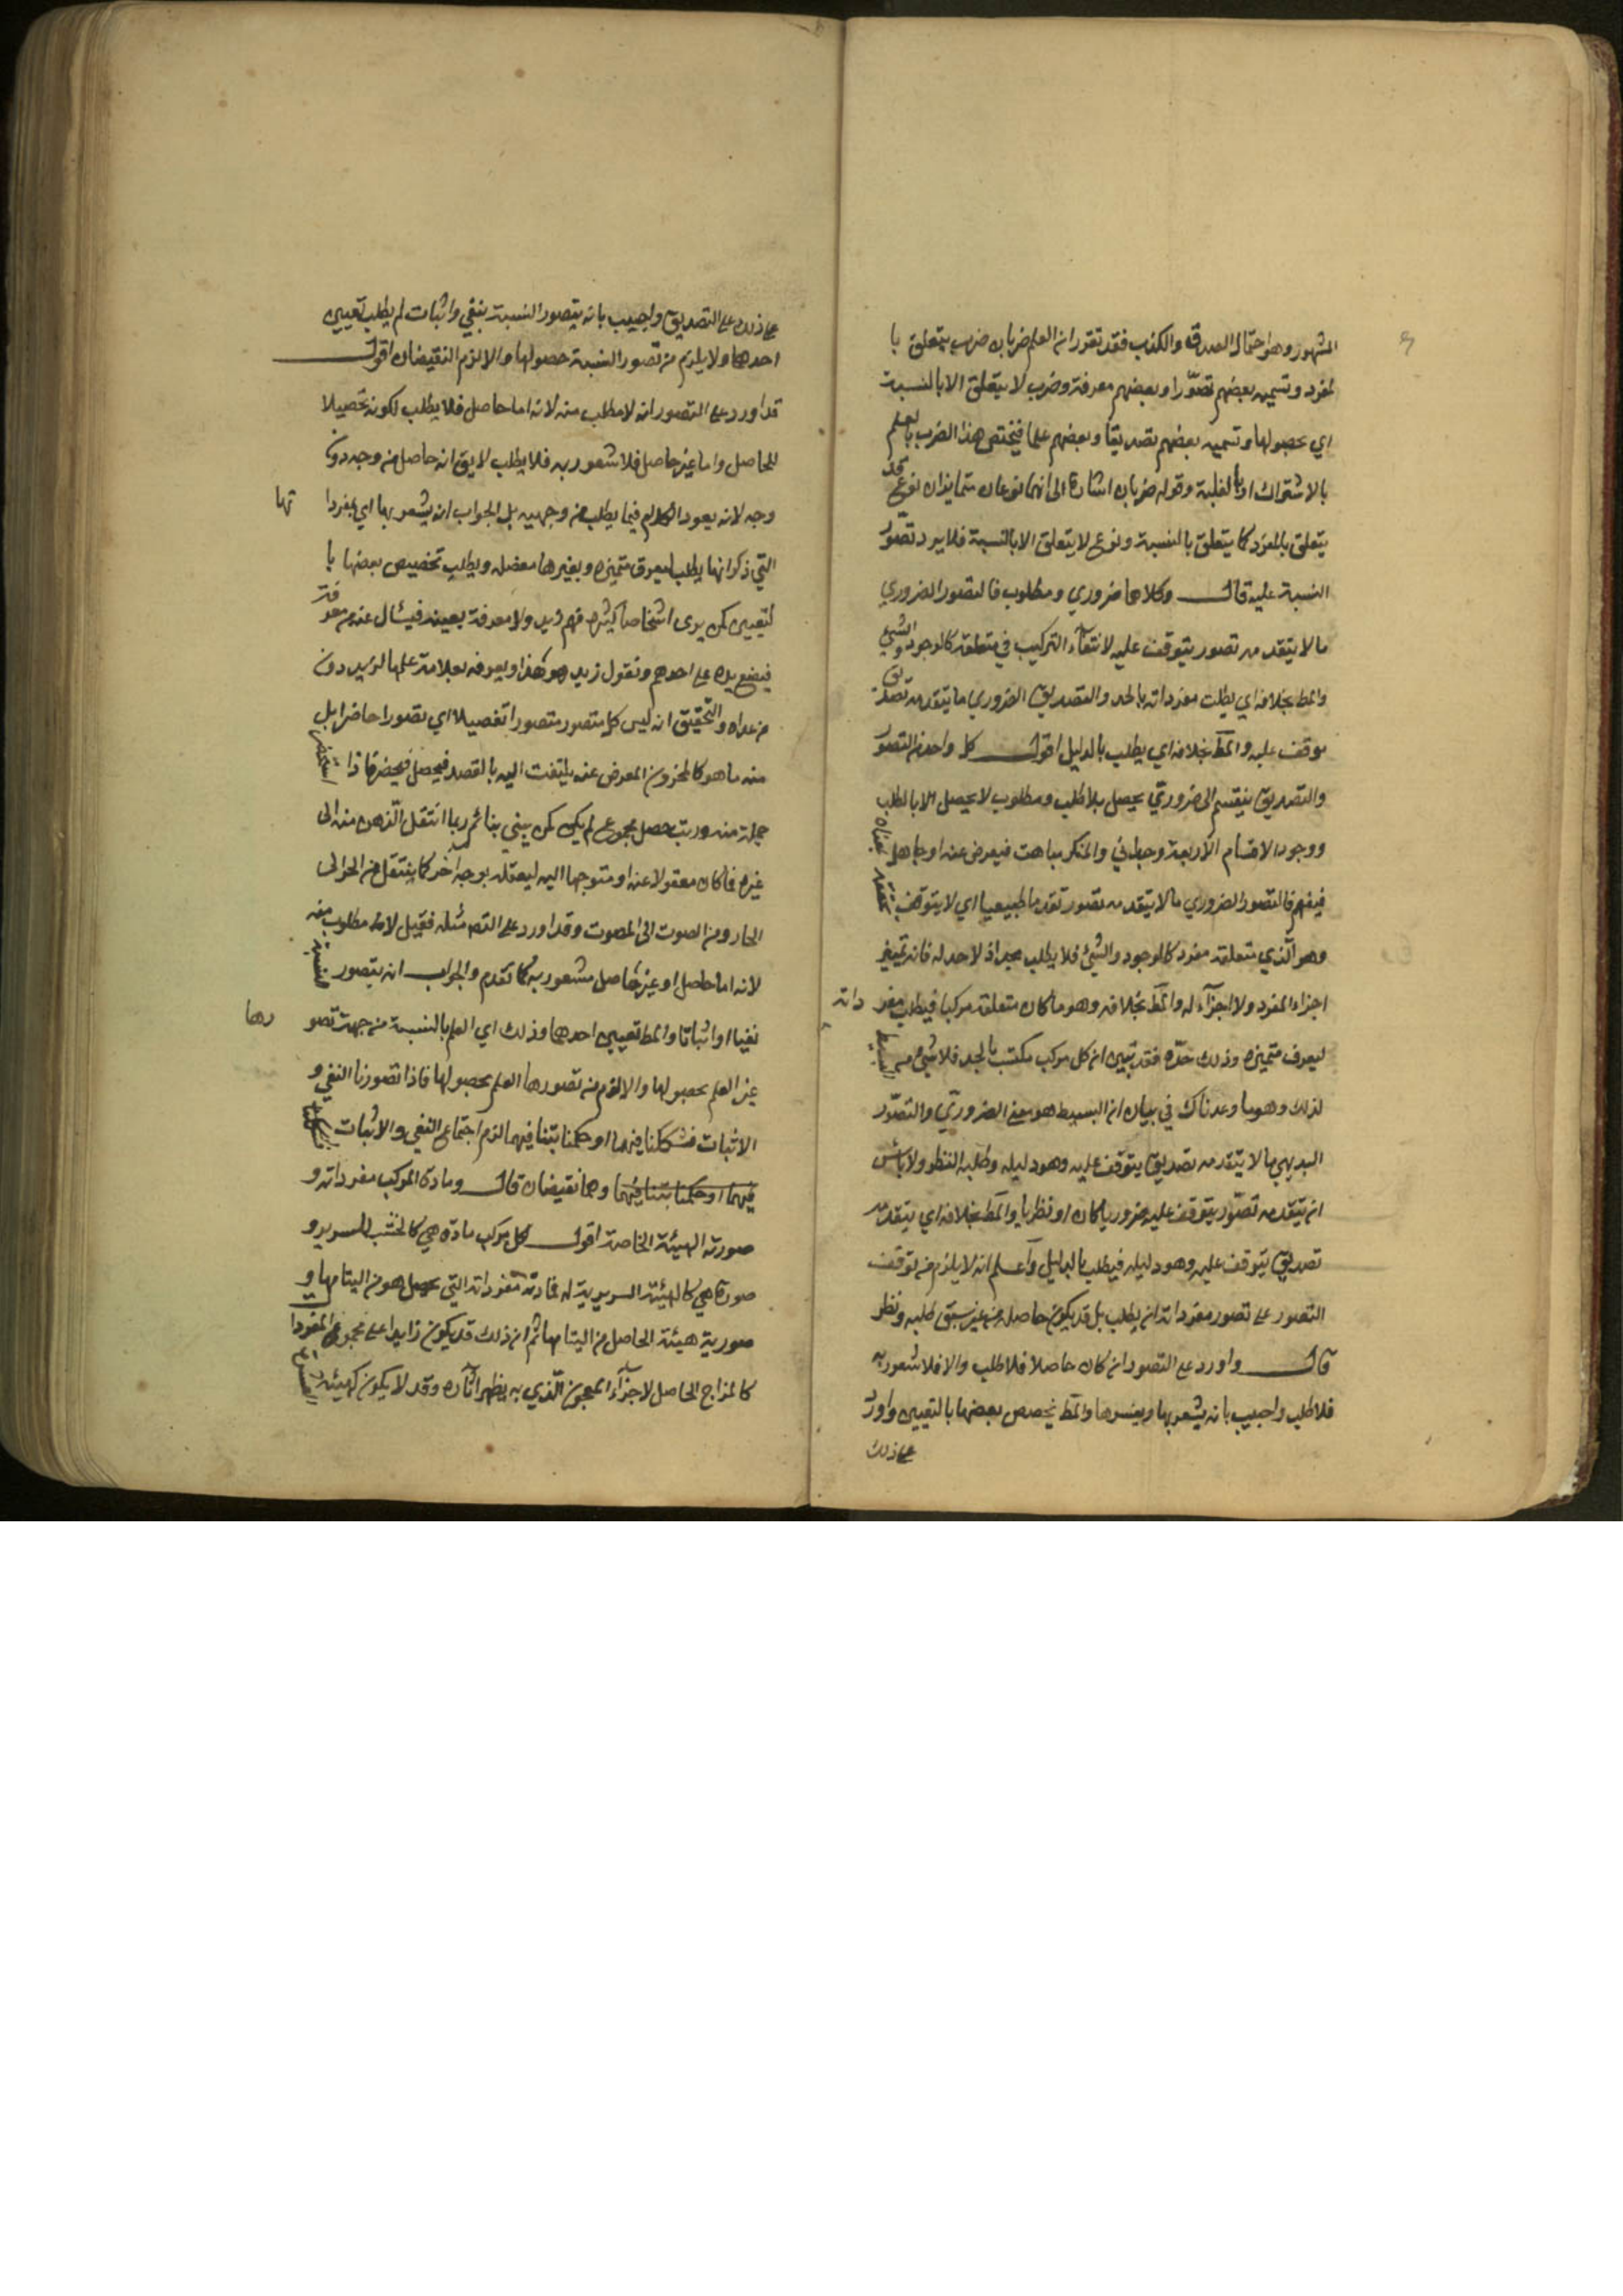 المشهور وهو احتمال الصدق والكذب فقد تقرر ان العلم ضربان ضرب يتعلق با
لمفرد وتسميه بعضهم تصوّرا وبعضهم معرفة وضرب لا يتعلق الا بالنسبة
اي بحصولها وتسميه بعضهم تصديقا وبعضهم علما فيختص هذا الضرب بالعلم
بالاشتراك او بالغلبة وقوله ضربان اشارة الى انهما نوعان متمايزان نوع قد
يتعلق بالمفرد كما يتعلق بالنسبة ونوع لا يتعلق الا بالنسبة فلا يرد تصوّر
النسبة عليه قال وكلاهما ضروري ومطلوب فالتصور الضروري
ما لا يتقدمه تصور يتوقف عليه لانتفاء التركيب في متعلقه كالوجود والشيئ
والمط بخلافه اي يطلب مفرداته بالحد والتصديق الضروري ما يتقدمه تصديق
يوقف عليه والمط بخلافه اي يطلب بالدليل اقول كل واحد من التصور
والتصديق ينقسم الى ضروريّ يحصل بلا طلب ومطلوب لا يحصل الا بالطلب
ووجود الاقسام الاربعة وجدانيّ والمنكر مباهت فيعرض عنه او جاهل بمعناه
فيفهم فالتصور الضروري ما لا يتقدمه تصور تقدما طبيعيا اي لا يتوقف تحققه
وهو الّذي متعلقه مفرد كالوجود والشيئ فلا يطلب بحد اذ لا حد له فانه تمييز
اجزاء المفرد ولا اجزآء له والمط بخلافه وهو ما كان متعلقه مركبا فيطلب مفر داته
ليعرف متميزه وذلك حدّه فقد تبيين ان كل مركب مكتسب بالحد فلا شيئ من البسيط
لذلك وهو ما وعدناك في بيان ان البسيط هو معنى الضروريّ والتصوّر
البديهي ما لا يتقدمه تصديق يتوقف عليه وهو دليله وطلبه النظر ولا باس
ان يتقدمه تصوّر يتوقف عليه ضروريا كان او نظريا والمط بخلافه اي يتقدمه
تصديق يتوقف عليه وهو دليله فيطلب بالدليل واعلم انه لا يلزم من توقف
التصور على تصور مفرداته ان يطلب بل قد يكون حاصلا من غير سبق طلب ونظر
قال واورد على التصور ان كان حاصلا فلا طلب والا فلا شعور به
فلا طلب واجيب بانه يشعر بها وبغيرها والمط تخصص بعضها بالتعيين واورد
على ذلك
على ذلك على التصديق واجيب بانه يتصور النسبة بنفي واثبات ثم يطلب تعيين
احدهما ولا يلزم من تصور النسبة حصولها والا لزم النقيضان اقول
قد اورد على التصور انه لا مطلب منه لانه اما حاصل فلا يطلب لكونه تحصيلا
للحاصل واما غير حاصل فلا شعور به فلا يطلب لا يق انه حاصل من وجه دون
وجه لانه يعود الكلام فيما يطلب من وجهيه بل الجواب انه يشعر بها اي بمفردا تها
التي ذكر انها يطلب ليعرف متميزه وبغيرها مفصله ويطلب تخصيص بعضها با
لتعيين كمن يرى اشخاصا كثيره فيهم زيد ولا معرفة بعينه فيسال عنه من معرفته
فيضع يده على احدهم ونقول زيد هو هذا او يعرفه بعلامة علمها لزيد دون
من عداه والتحقيق انه ليس كل متصور متصورا تفصيلا اي تصورا حاضرا بل
منه ما هو كالمخزون المعرض عنه يلتفت اليه بالقصد فيحصل فيحضر فاذا استحضر
جملة منه ورتب حصل مجموع لم يكن كمن يبني بنائم ربما انتقل الذهن منه الى
غيره فما كان معقولا عنه او متوجها اليه ليعقله بوجه اخر كما ينتقل من الحر الى
الحار ومن الصوت الى المصوت وقد اورد على التص مثله فقيل لا مطلوب منه
لانه اما حاصل او غير حاصل مشعور به كما تقدم والجواب انه يتصور النسبة
نفيا او اثباتا والمط تعيين احدهما وذلك اي العلم بالنسبة من جهت تصو رها
غير العلم بحصولها والا لزم من تصورها العلم بحصولها فاذا تصورنا النفي و
الاثبات فشككنا فيهما او حكمنا بتنافيهما لزم اجتماع النفي والاثبات
فيهما او حكمنا بتنافيهما وهما نقيضان قال ومادة المركب مفرداته و
صورته الهيئة الخاصة اقول كل مركب مادة هي كالخشب للسرير و
صورة هي كالهيئة السريرية له فمادته مفرداته التي يحصل هو من التيامها و
صورته هيئة الحاصل من التيامها ثم ان ذلك قد يكون زايدا على مجموع المفردا
كالمزاج الحاصل لاجزآء المعجون الّذي به يظهر اثاره وقد لا يكون كهيئة